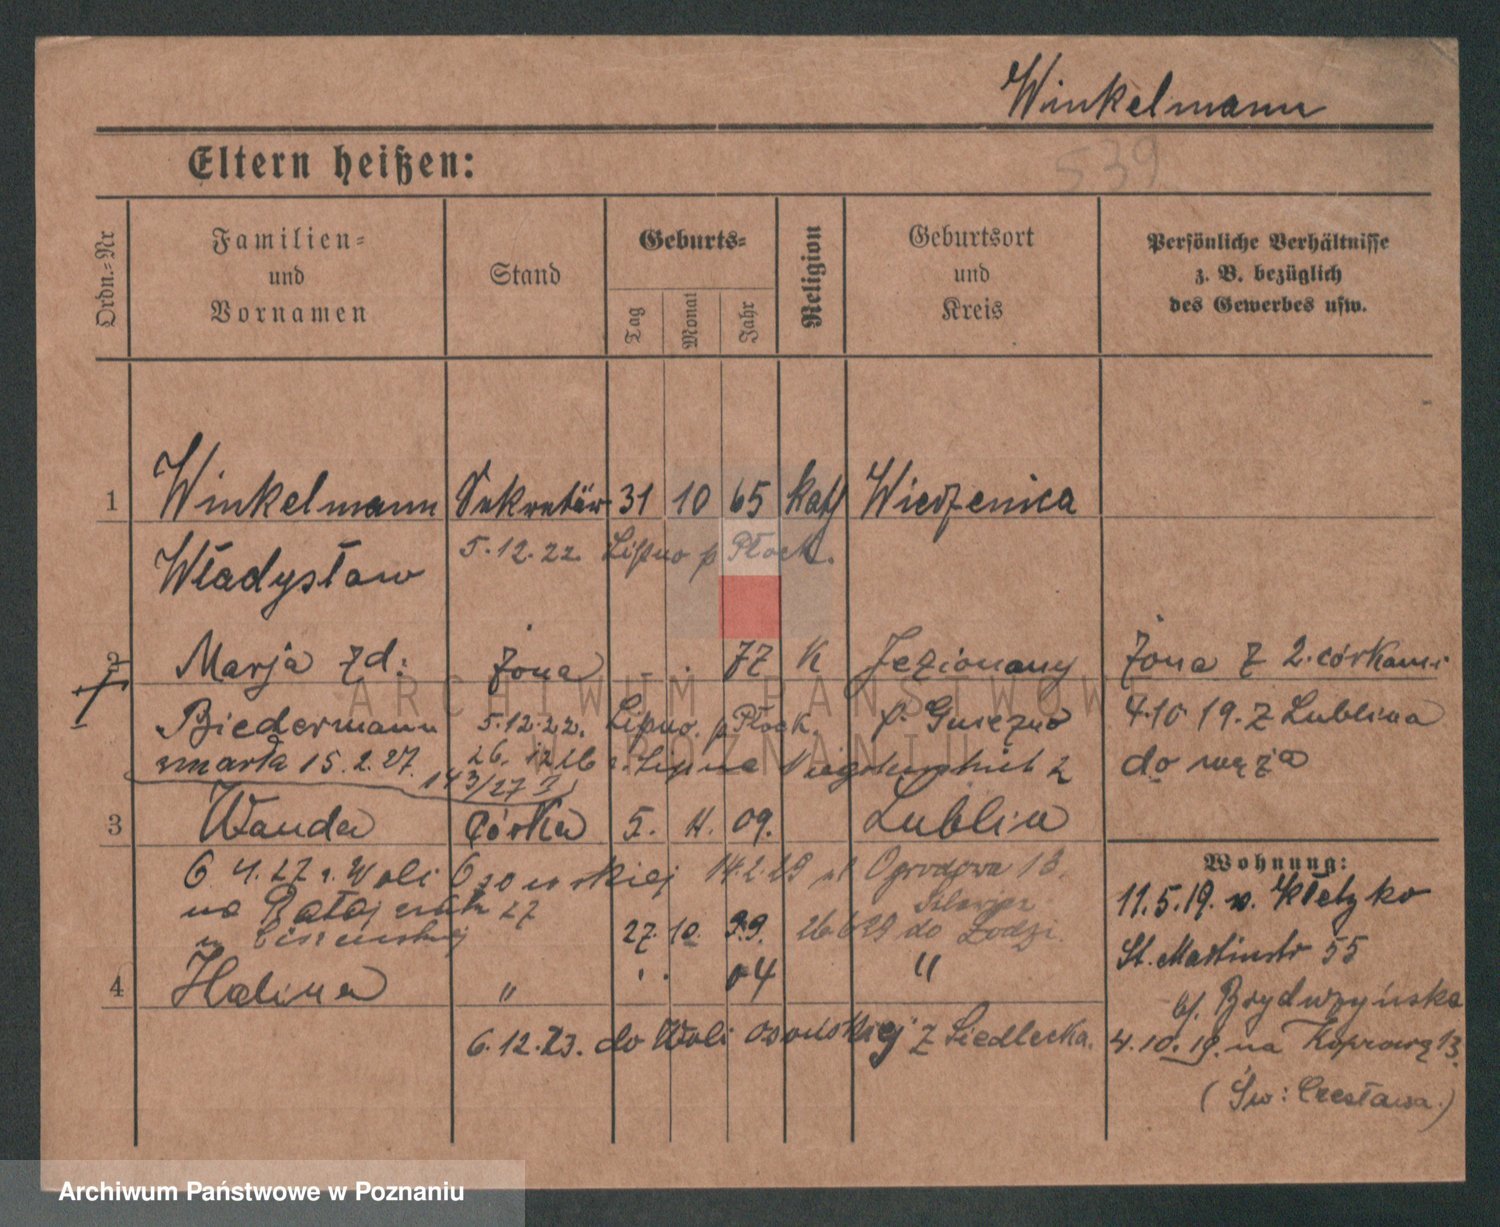 Winkelmann
539
Eltern heißen:
Ordn.-Nr
Familien- und Vornamen
Stand
Geburts-
Tag
Monat
Jahr
Religion
Geburtsort und Kreis
Persönliche Verhältnisse z. B. bezüglich des Gewerbes usw.
1 Winkelmann Sekretär 31 10 65 kath Wierzenica
Władysław 5.12.22 Lipno p Płock.
2 Marja zd: żona 77 K Jeziorany żona z 2 córkami
Biedermann 5.12.22. Lipno p Płock. p. Gniezno 4.10 19. z Lublina
zmarła 15.2.27. 26. 12 26 z Lipna do męża
143/27
3 Wanda córka 5. 11. 09. Lublin
Wohnung:
6 4.27 z Woli 14.2.29 Ogrodowa 13.
11.5.19. v. Kletzko
na 27
27. 10. 99. 26.6 29 do Łodzi.
St. Martinstr 55
4 Halina " 04 "
b/. Brydużyńska
6.12.23. do Woli z Siedlecka.
4.10.19. na 13.
(Św: Czesława.)
ARCHIWUM PAŃSTWOWE
W POZNANIU
Archiwum Państwowe w Poznaniu